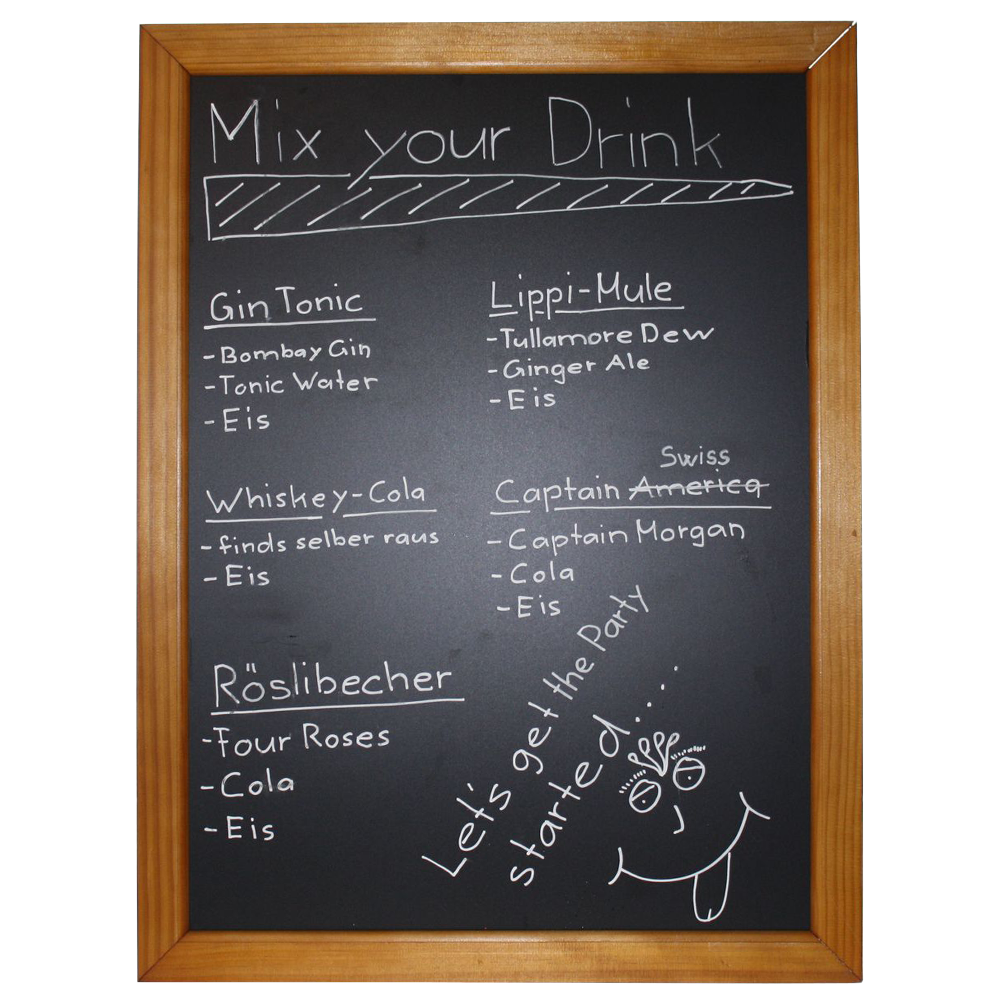 Mix your Drink
Gin Tonic
-Bombay Gin
-Tonic Water
-Eis
Lippi-Mule
-Tullamore Dew
-Ginger Ale
-Eis
Whiskey-Cola
-finds selber raus
-Eis
Swiss
Captain America
-Captain Morgan
-Cola
-Eis
Röslibecher
-Four Roses
-Cola
-Eis
Let's get the Party
started....